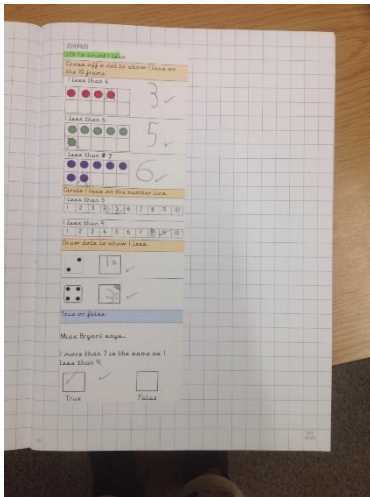 LO: To count 1 less.
Cross off a dot to show 1 less on
the 10 frame.
1 less than 4
3
1 less than 6
5
1 less than 7
6
Circle 1 less on the number line
1 less than 5
1 2 3 4 5 6 7 8 9 10
1 less than 9
1 2 3 4 5 6 7 8 9 10
Draw dots to show 1 less
True or false
Miss Bryant says...
1 more than 7 is the same as 1
less than 9.
True False